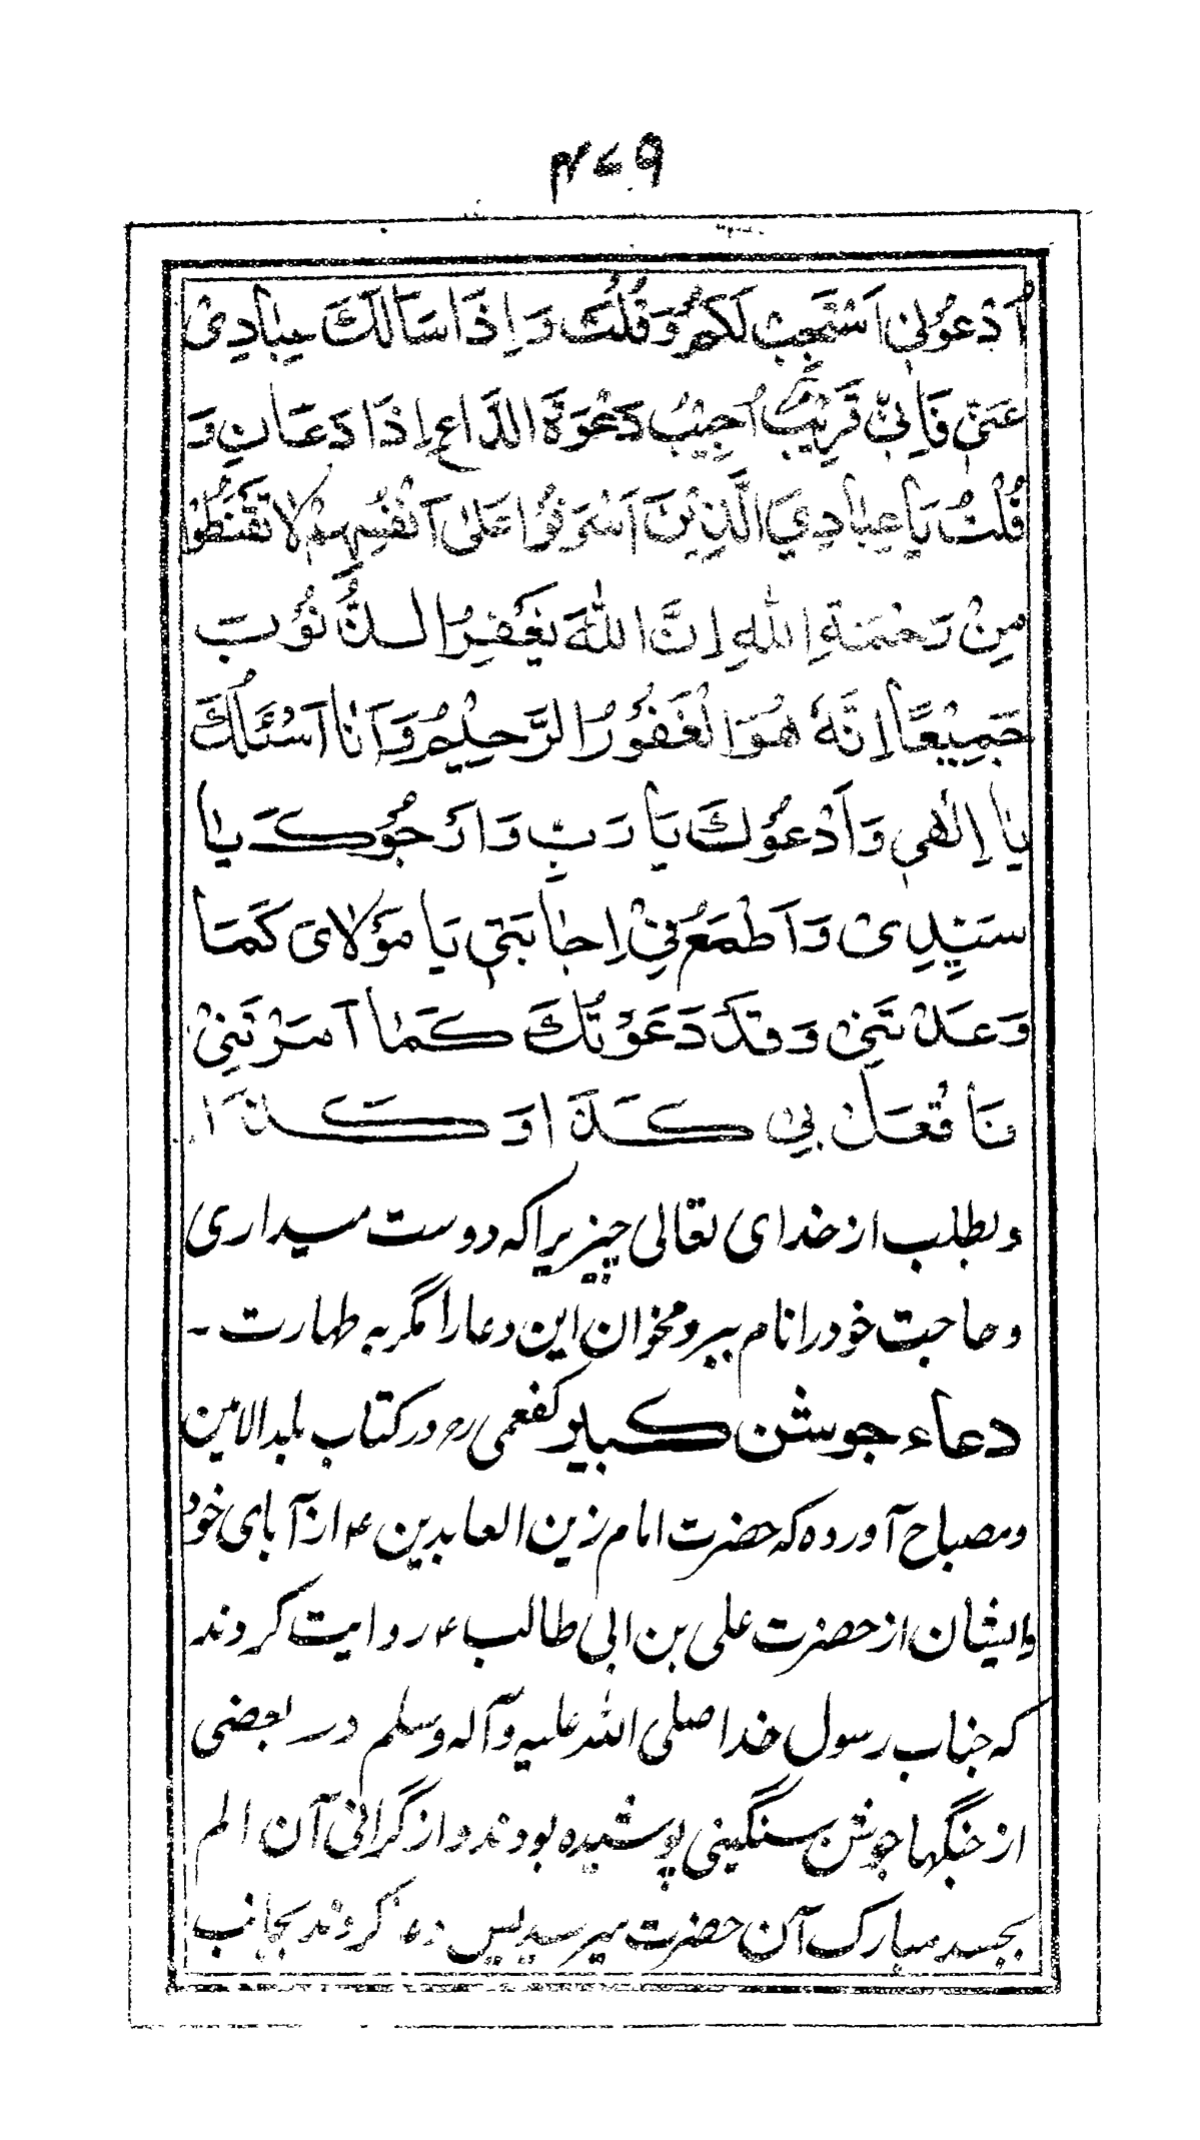 ۴۷۹
اُدْعُوْنِیْ اَسْتَجِبْ لَکُمْ وَقُلْتَ وَاِذَا سَاَلَكَ عِبَادِیْ
عَنِّیْ فَاِنِّیْ قَرِیْبٌ اُجِیْبُ دَعْوَةَ الدَّاعِ اِذَا دَعَانِ وَ
قُلْتَ یَا عِبَادِيَ الَّذِیْنَ اَسْرَفُوْا عَلٰی اَنْفُسِهِمْ لَا تَقْنَطُوْا
مِنْ رَحْمَةِ اللّٰهِ اِنَّ اللّٰهَ یَغْفِرُ الذُّنُوْبَ
جَمِیْعًا اِنَّهٗ هُوَ الْغَفُوْرُ الرَّحِیْمُ وَ اَنَا اَسْئَلُكَ
یَا اِلٰهِیْ وَ اَدْعُوْكَ یَا رَبِّ وَ اَرْجُوْكَ یَا
سَیِّدِیْ وَ اَطْمَعُ فِیْ اِجَابَتِیْ یَا مَوْلَایَ کَمَا
وَعَدْتَنِیْ وَ قَدْ دَعَوْتُكَ کَمَا اَمَرْتَنِیْ
فَافْعَلْ بِیْ کَذَا وَ کَذَا
وبطلب از خدای تعالی چیزیرا که دوست میداری
و حاجت خود را نام ببر و مخوان این دعا را مگر به طهارت ۔
دعاء جوشن کبیر کفعمی رہ در کتاب بلد الامین
و مصباح آورده که حضرت امام زین العابدین ع از آبای خود
و ایشان از حضرت علی بن ابی طالب ع روایت کردند
که جناب رسول خدا صلی الله علیه و آله و سلم در بعضی
از جنگها جوشن سنگینی پوشیده بودند و از گرانی آن الم
بجسد مبارک آن حضرت میرسید پس دعا کردند بجانب